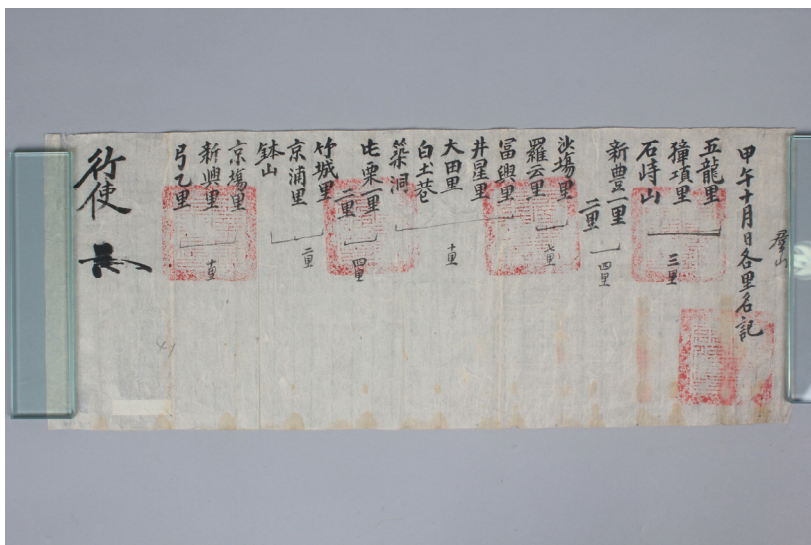 群山
甲午十月日各里名記
五龍里
獐項里
石峙山
三里
新豊一里
二里
四里
沙塲里
羅云里
七里
冨興里
井星里
大田里
白土巷
築洞
十里
屯栗一里
二里
四里
竹城里
京浦里
二里
鉢山
京塲里
新興里
弓乙里
行使